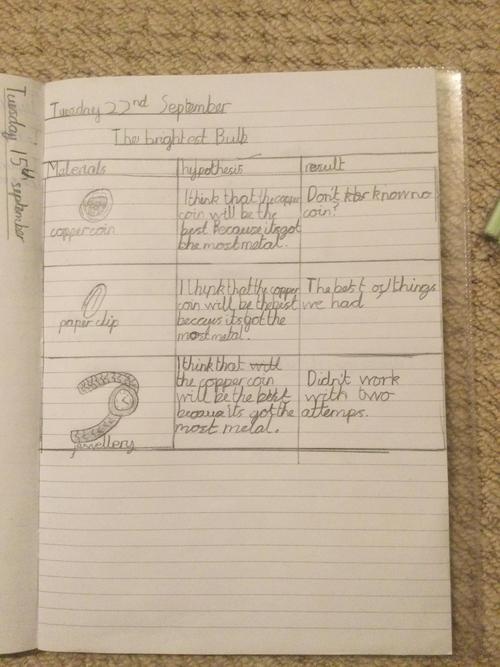 Tuesday 15th september
Tuesday 22nd September
The brightest Bulb
Materials hypothesis result
copper coin
I think that the copper
coin will be the
best Because its got
the most metal.
Don't know no
coin?
paper clip
I think that the copper
coin will be the best
becaus its got the
most metal.
The best of things
we had
jewellery
I think that will
the copper coin
will be the best
because its got the
most metal.
Didn't work
with two
attemps.